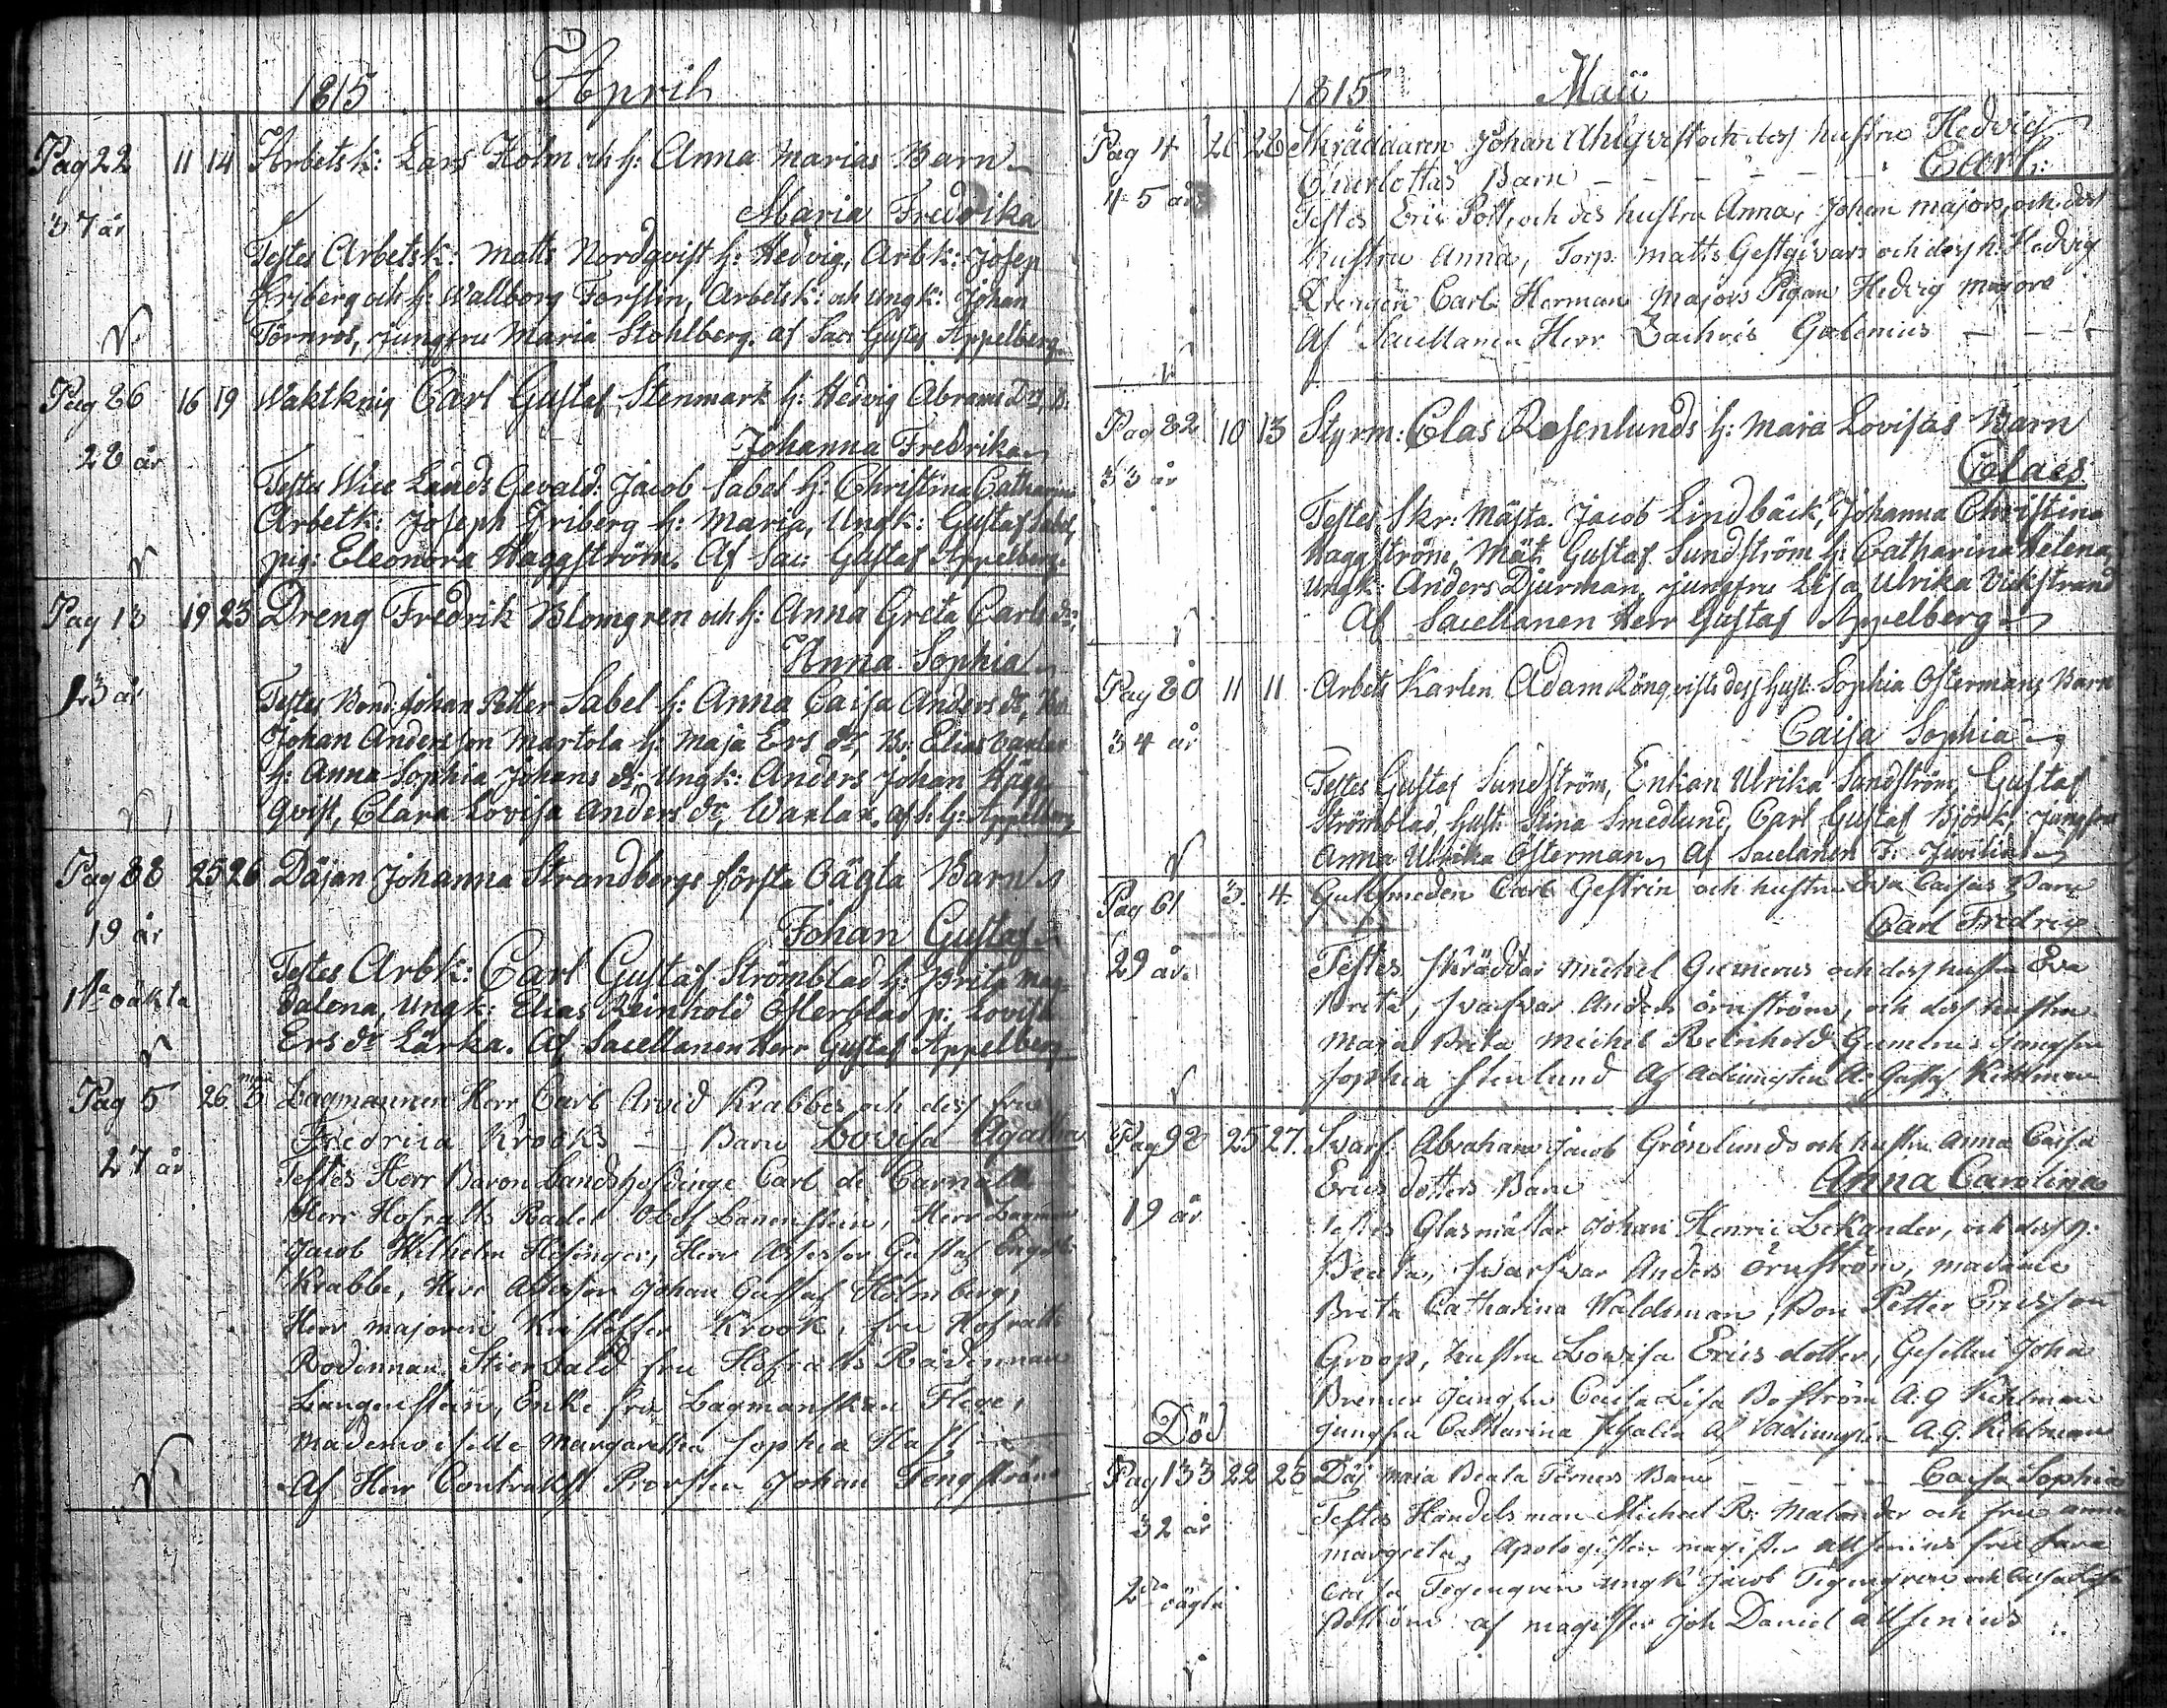 1815 April
Pag 22 11 14 Arbetsk: Lars Holm och h: Anna Marias Barn
Maria Fredrika
37 år
Testes Arbetsk: Matts Nordqvist h: Hedvig, Arbk: Josep
Friberg och h: Wallborg Forslin, Arbetsk: och Ungk: Johan
Törnros, jungfru Maria Stohlberg. af Sac: Gustaf Appelberg
Pag 26 16 19 Waktknig Carl Gustaf Stenmark h: Hedvig Abrams Dr, B.
Johanna Fredrika
28 år
Testes Wice Lands Gevald: Jacob Sabel h: Christina Catharina
Arbetk: Joseph Friberg h: Maria, Ungk: Gustaf Sabel,
pig: Eleonora Haggström. Af Sac: Gustaf Appelberg.
Pag 13 19 23 Dreng Fredrik Blomgren och h: Anna Greta Carls dr,
Anna Sophia
23 år
Testes Bond: Johan Petter Sabel h: Anna Caisa Anders dr,
Johan Andersson Martola h: Maja Ers dr, B: Elias
h: Anna Sophia Johans dr, Ungk: Anders Johan Hägg
qvist, Clara Lovisa Anders dr, Waxlax. af h: G: Appelberg
Pag 88 25 26 Däjan Johanna Strandbergs första Oägta Barn
19 år
Johan Gustaf
Testes Arbk: Carl Gustaf Strömblad h: Brita Mag-
1sta oäkta
dalena, Ungk: Elias Reinhold Österblad p: Lovisa
Ers dr Lärka. Af Sacellanen Herr Gustaf Appelberg
Pag 5 26 3 Lagmannen Herr Carl Arvid Krabbes och dess fru
Fredrica Krooks Barn Lovisa Agatha
27 år
Testes Herr Baron Landshöfdinge Carl de Carnall
Herr Hofratts Radet Olof Langenstein, Herr Lagman
Jacob Wilhelm Hisinger, Herr Assessor Gustaf
Krabbe, Herr Assessor Johan Gustaf Holmberg,
Herr majoren Kristoffer Krook, fru Hofratts
Rådinnan Stiernvald fru Hofratts Rådinnan
Langenstein, Enke fru Lagmanskan Flege,
Mademoiselle Margaretha Sophia
Af Herr Contrakst Prosten Johan Tengström
1815 Maii
Pag 4 26 28 Skräddaren Johan Ahlqvist och dess hustru Hedvig
Charlottas Barn Carl
45 år
Testes Eric Pott, och des hustru Anna, Johan majors, och dess
hustru Anna, Torp. Matts Gestgivars och dess h: Hedvig
Drengen Carl Herman Majors Pigan Hedvig majors
Af Sacellanen Herr Zachris Galenius
Pag 82 10 13 Styrm: Clas Rosenlunds h: Maia Lovisas Barn
Claes
33 år
Testes Skr: Mästa. Jacob Lindbäck, Johanna Christina
Haggström, Mät: Gustaf Sundström h: Catharina Helena
Ungk: Anders Djurman, jungfru Lisa Ulrika Vikstrand
Af Sacellanen Herr Gustaf Appelberg
Pag 80 11 11 Arbets Karlen Adam Rönqvists dess hust: Sophia Östermans Barn
34 år
Caisa Sophia
Testes Gustaf Sundström, Enkan Ulrika Sundström, Gustaf
Strömblad, hust: Stina Smedlund, Carl Gustaf Björk jungfru
Anna Ulrika Österman, Af Sacelanen F.
Pag 61 3. 4. Gulsmeden Carl Gestrin och hustru Eva Caisas Barn
Carl Fredric
29 år.
Testes Skräddar Michel Gumerus och dess hustru Eva
Brita, Svarfvar Anders Örnström, och dess hustru
Maria Brita Michel Reinhold Gummerus jungfru
Sophia Stenlund Af Adiungten A. Gustaf Kihlman
Pag 98 25 27. Svarf. Abraham Jacob Grönlunds och hustru Anna Caisa
Erics dotters Barn Anna Carolina
19 år
Testes Glasmästar Johan Henric Lekander, och dess h:
Beata, Svarfvar Anders Örnström, madame
Brita Catharina Waldsman, Bon Petter Ericsson
Groop, hustru Lowisa Erics dotter, Gesellen Johan
Bremer jungfru Caisa Lisa Boström A. G Kihlman
Död
jungfru Catharina Af Adiungten A. G. Kihlman
Pag 133 22 25 Däj Maia Beata Törners Barn Caisa Sophia
32 år
Testes Handelsman Michael R: Malander och fru Anna
Margreta, Apologisten magister Alfenius fru Sara
Caisa Tegengren Ungk Jacob Tegengren och Caisa Lisa
2dra oägta
Boström af magister Joh Daniel Alfenius